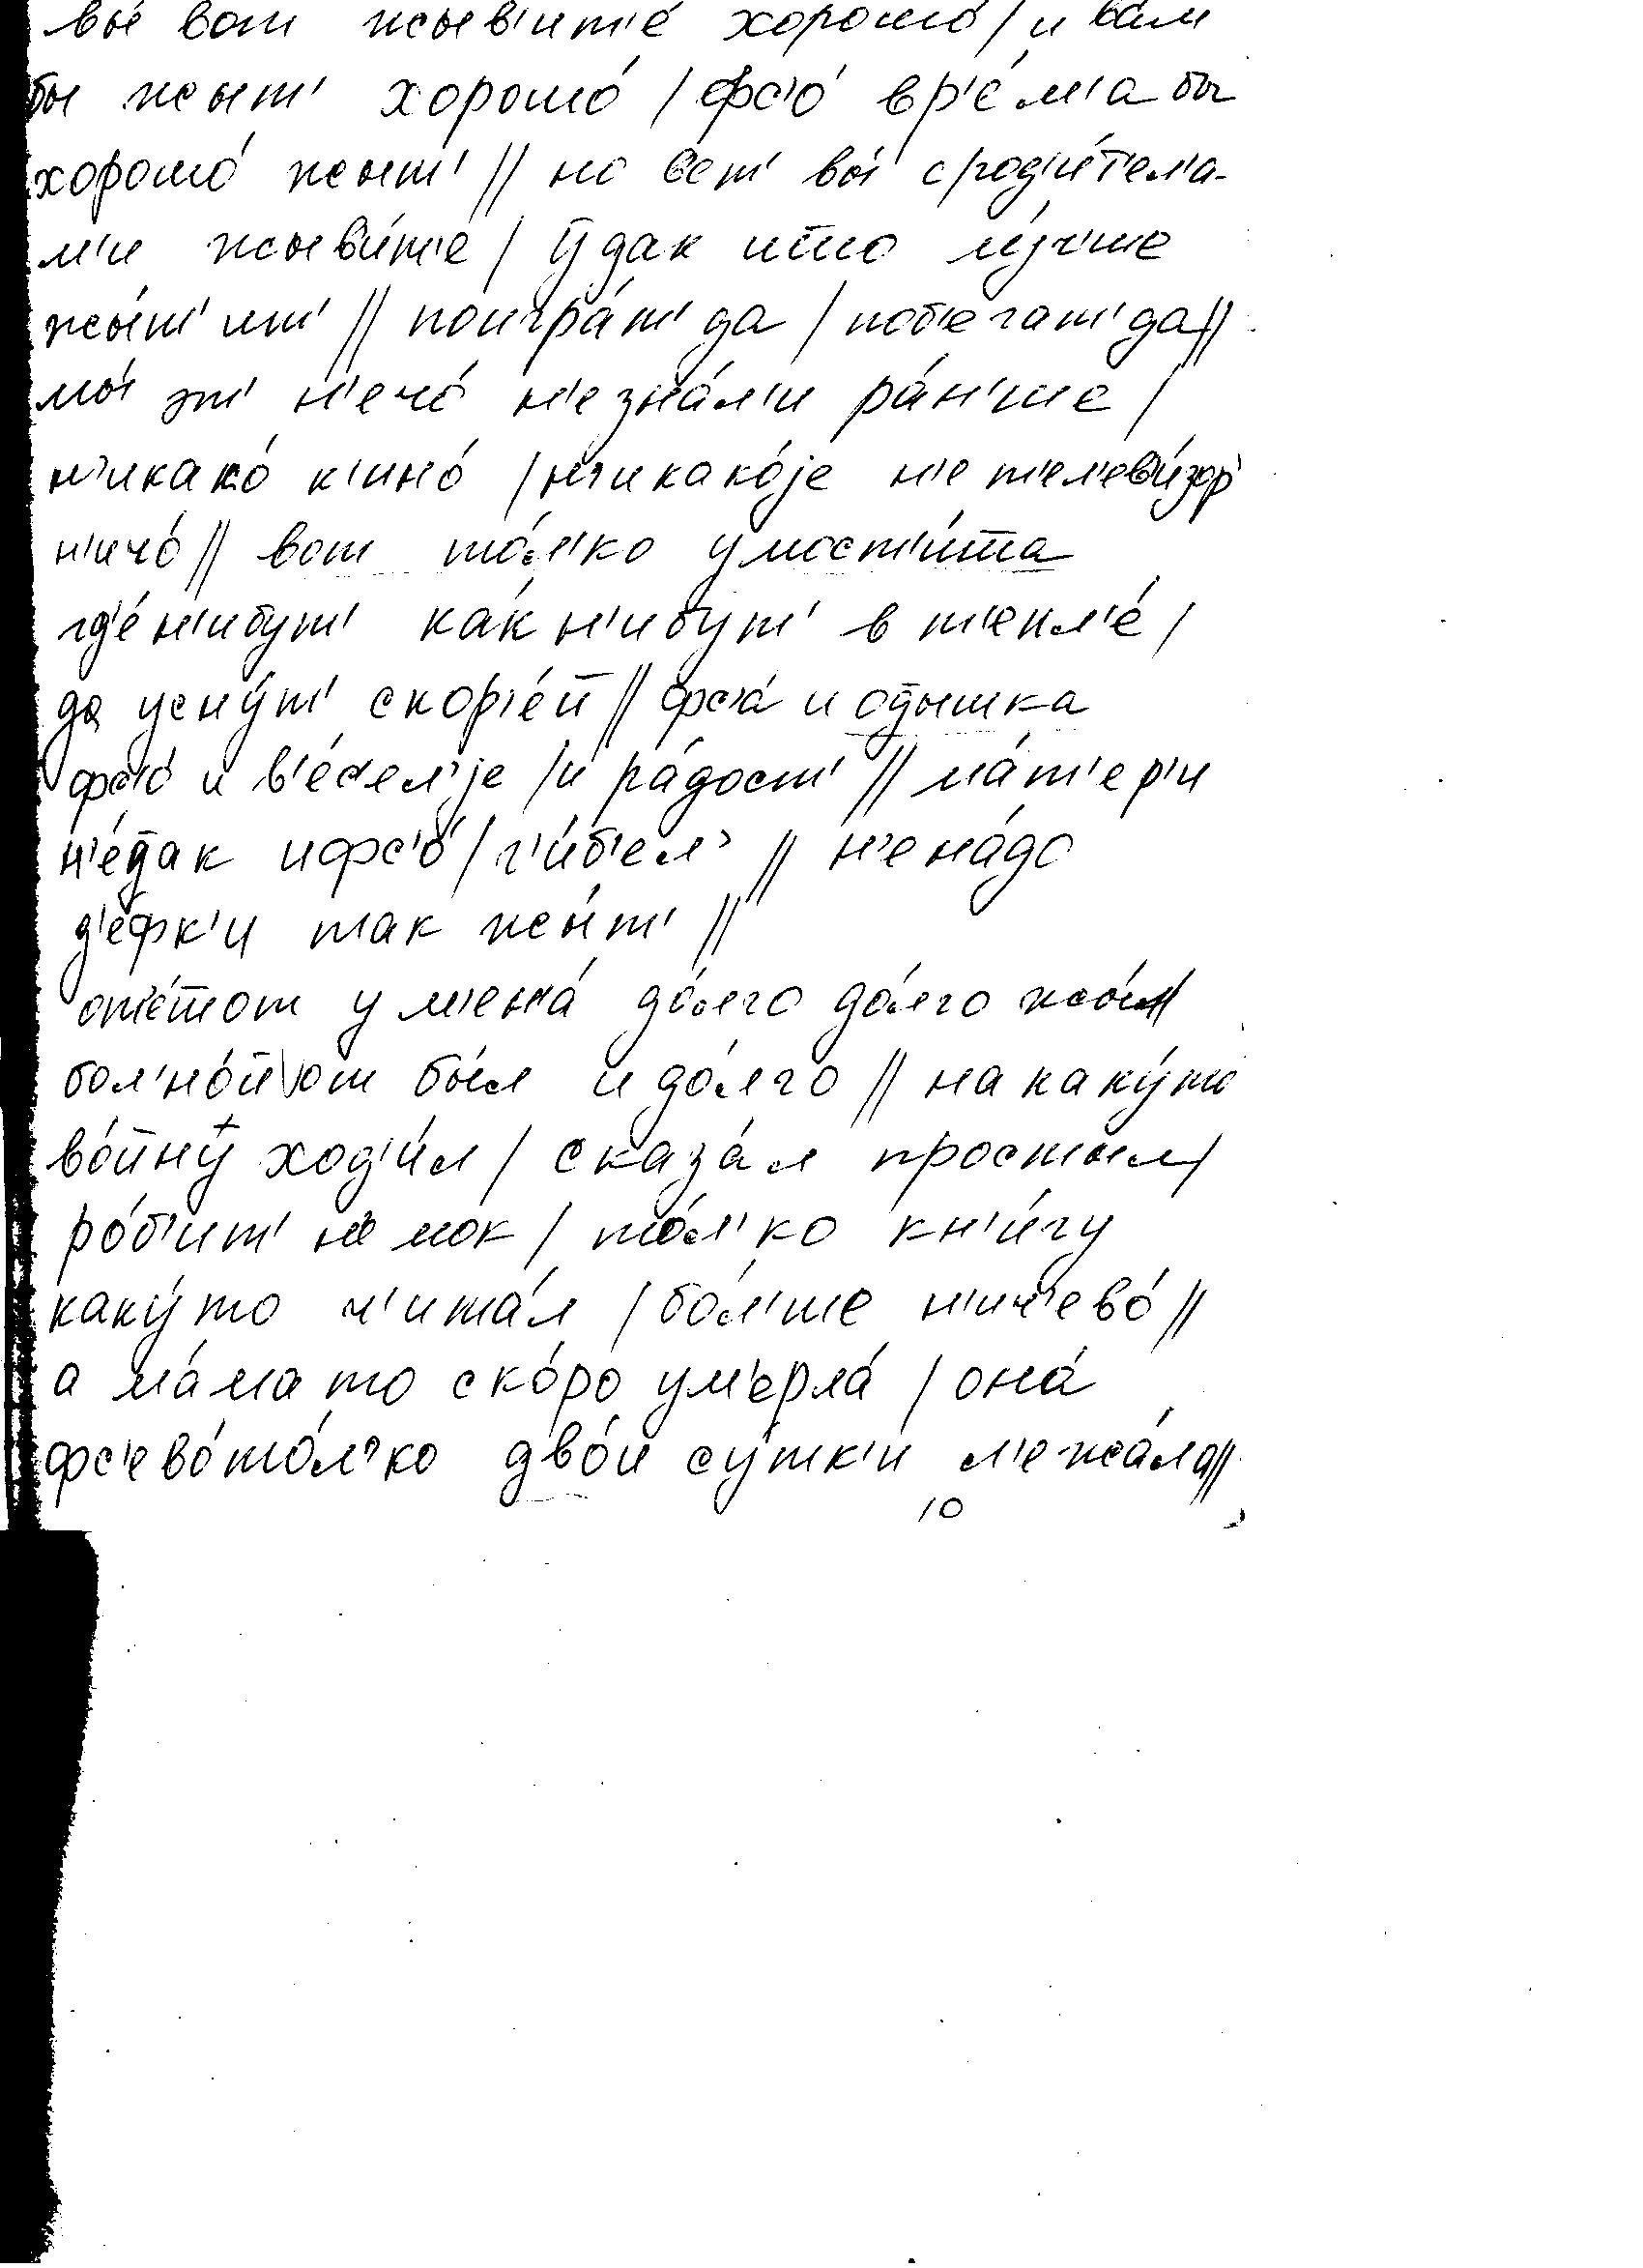 вы́ вот жыв'ит'е́ хорошо́ / и ва́м
бы жыт' хорошо́ / фс'о́ вр'е́м'а бы
хорошо́ жыт' // но вот вы́ с род'и́т'ел'а-
м'и жыв'и́т'е / ӱ дак што лу́ч'ше
жы́т' ит' // поигра́т' да / поб'егат' да //
мы́ эт' н'ечо́ н'е зна́л'и ра́н'ше /
н'икако́ к'ино́ / н'икако́је н'е т'ел'ев'и́зор
н'ичо́ // вот то́л'ко умост'и́тца
гд'е́ н'ибут' ка́к н'ибут' в т'епл'е́ /
да усну́т' скор'е́й // фс'а́ и одышка
фс'о́ и в'е́с'ел'је / и ра́дост' // ма́т'ер'и
н'е́ дак и фс'о́ / г'и́б'ел' // н'е на́до
д'е́фк'и так жы́т' //
от'е́тот у м'ен'а́ до́лго до́лго жы́л //
бол'но́й от бы́л и до́лго // на каку́то
во́йну́ ход'и́л / сказа́л простыл /
ро́б'ит' не мок / то́л'ко кн'и́гу
каку́то ч'ита́л / бо́л'ше н'ич'ево́ //
а ма́ма то ско́ро ум'ерла́ / она́
фс'ево́ то́л'ко дво́и су́тк'и л'ежа́ла //
10